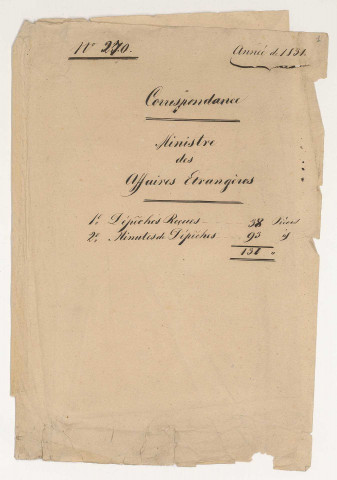 N° 270.
Année d. 1831.
Correspondance
Ministre
des
Affaires Etrangères
1° Dépêches Reçues 38 Pièces
2° Minutes de Dépêches 93 id
131 "